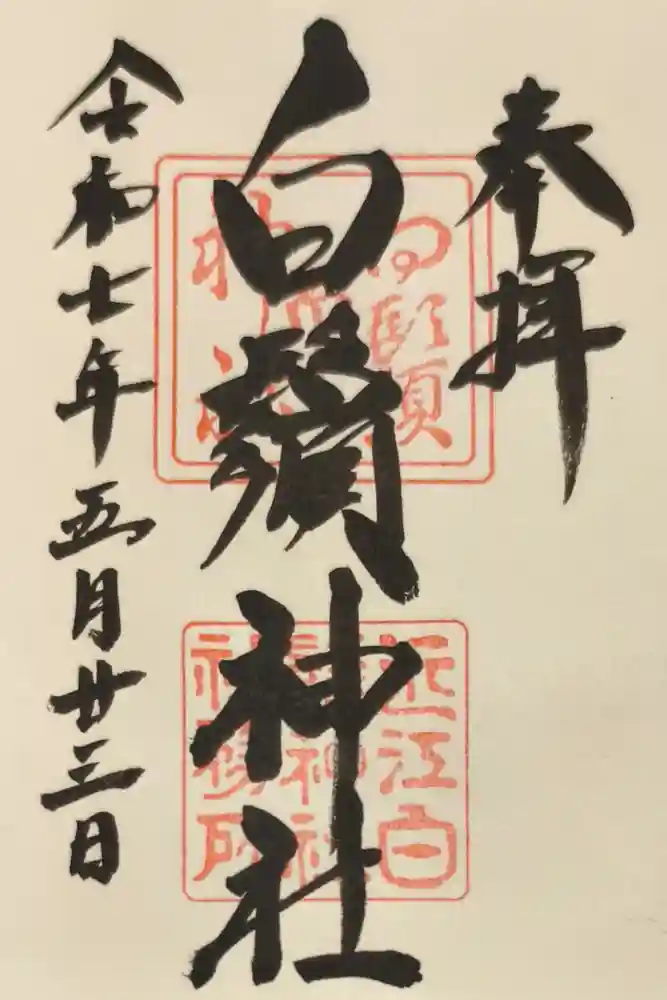 奉拝
白鬚神社
令和七年五月廿三日
白鬚
神社
近江白
鬚神社
社務所